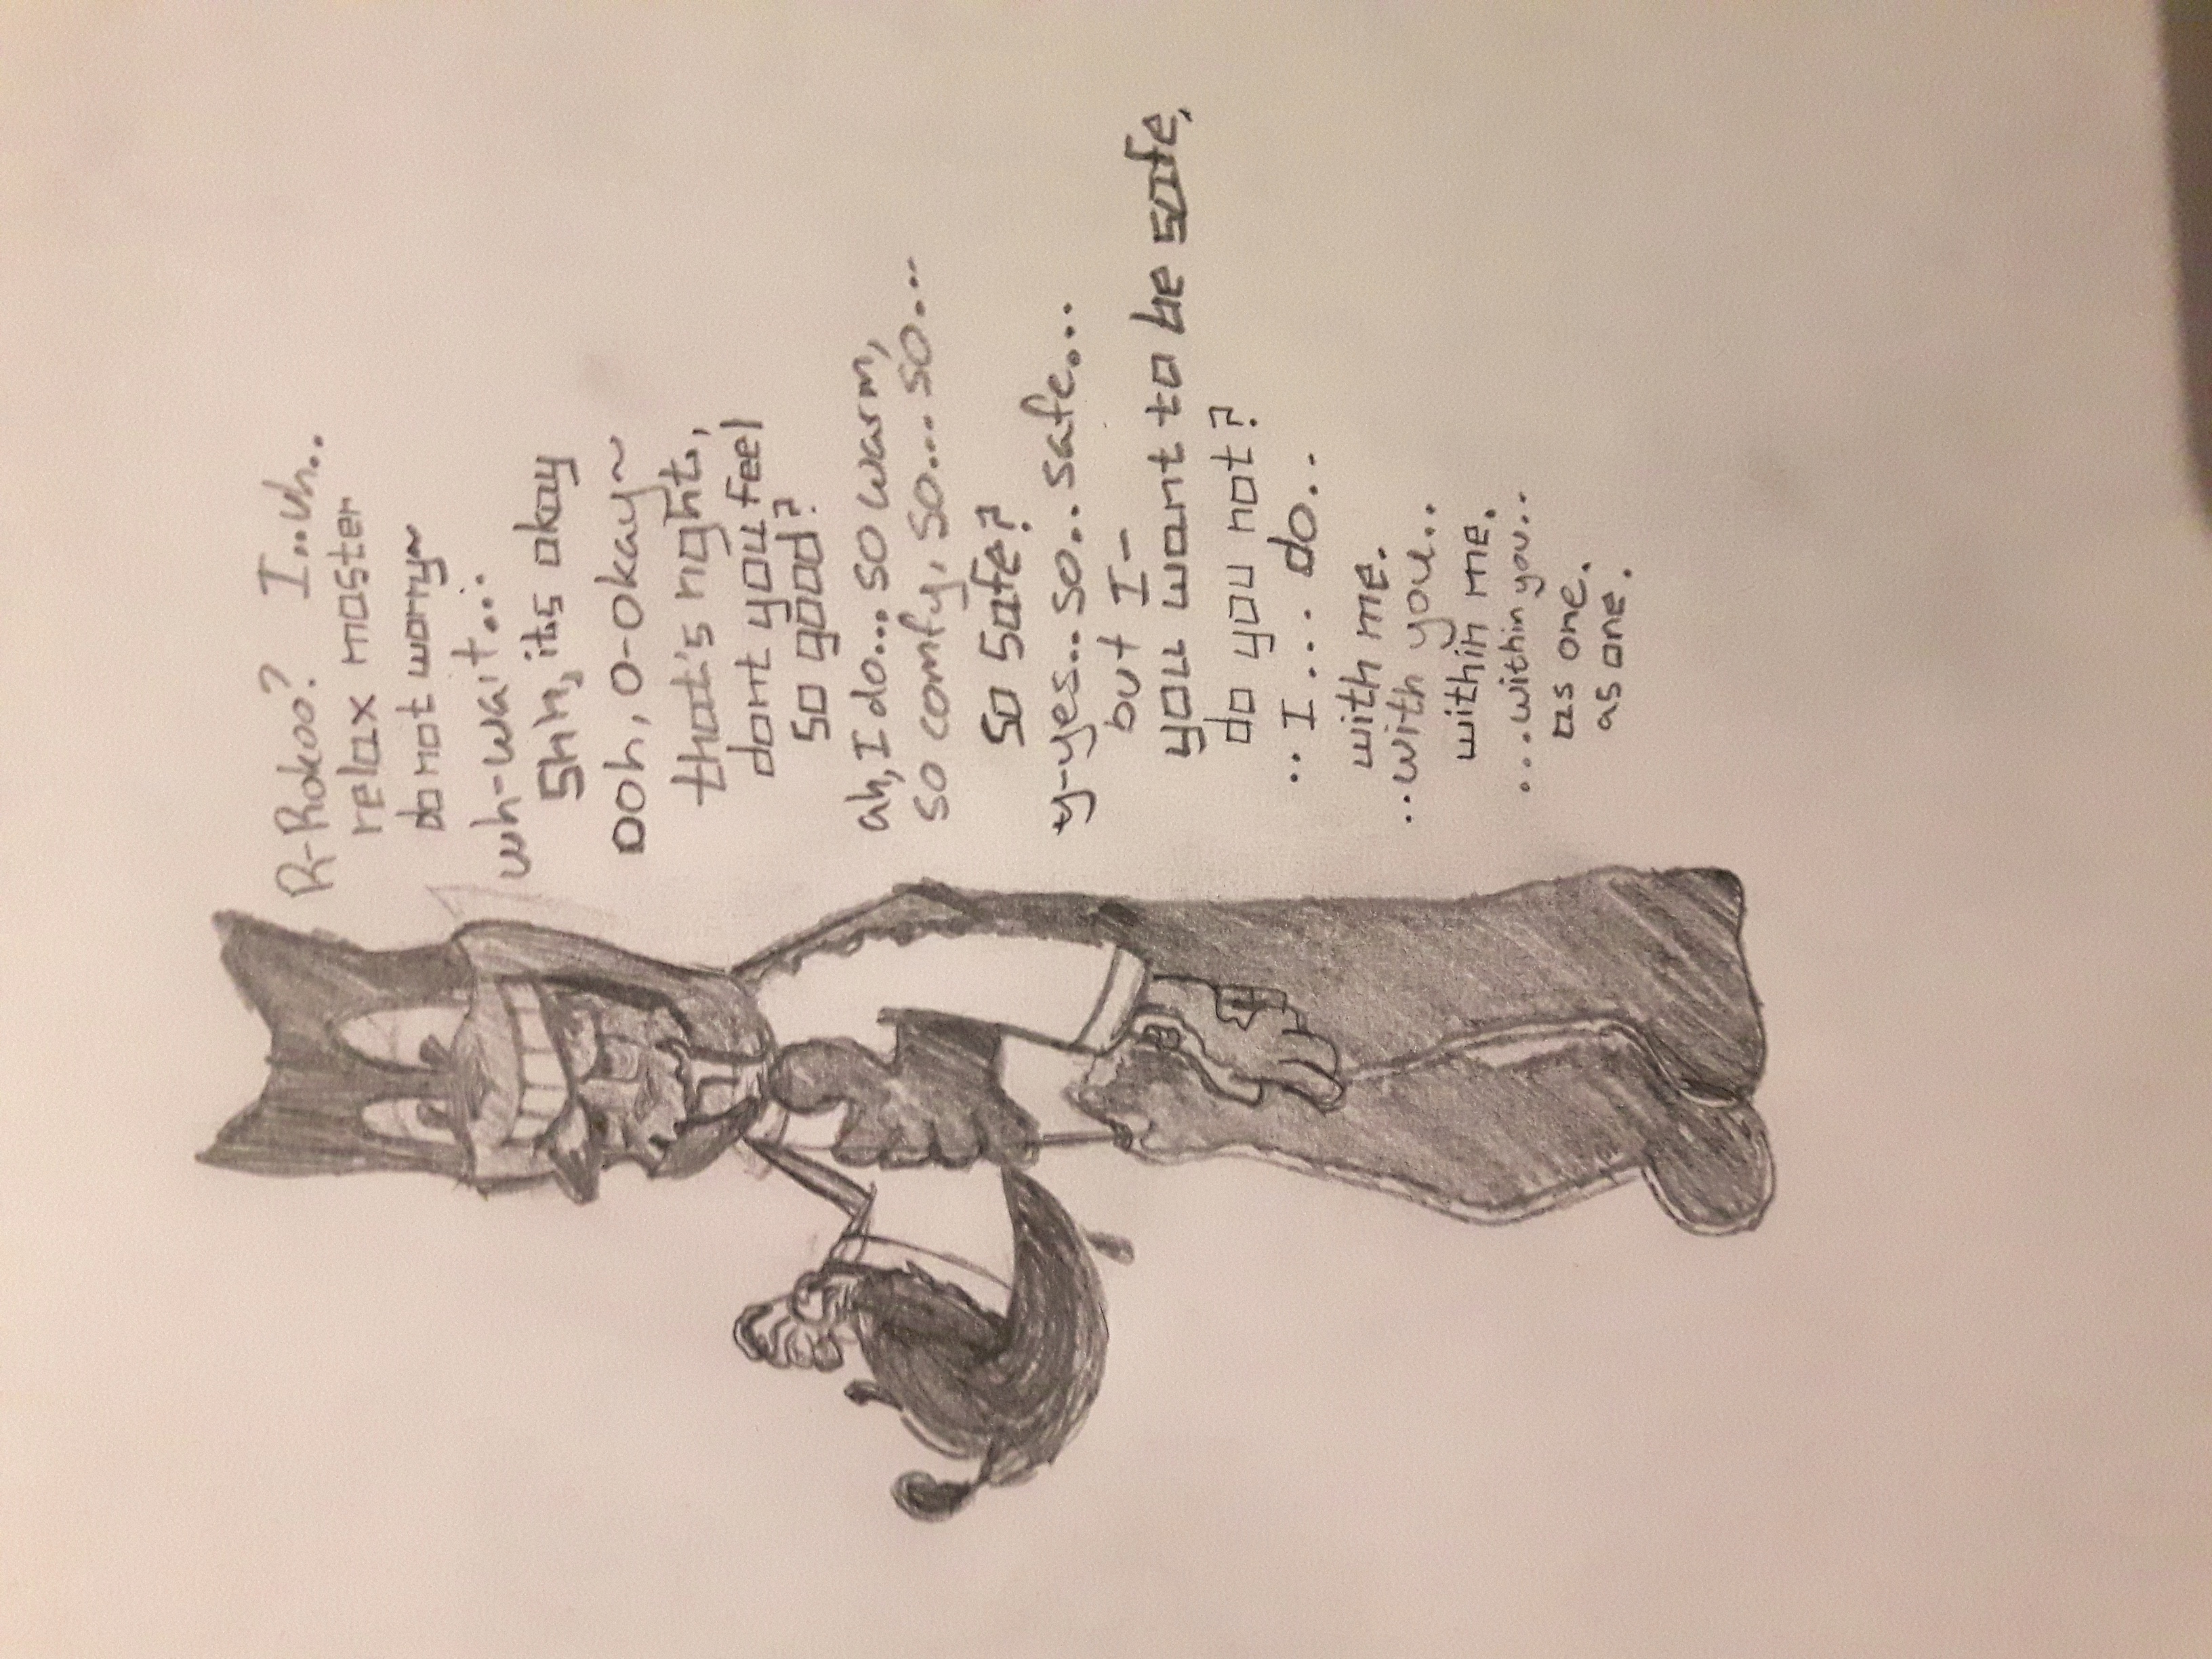 R-Rokoo? I..uh..
relax master
do not worry~
wh-wait...
shh, its okay
ooh, o-okay~
that's right,
dont you feel
so good?
ah, I do... so warm,
so comfy, so... so...
so safe?
y-yes... so.. safe...
but I-
you want to be safe,
do you not?
.. I.... do..
with me.
..with you..
within me.
....within you..
as one.
as one.